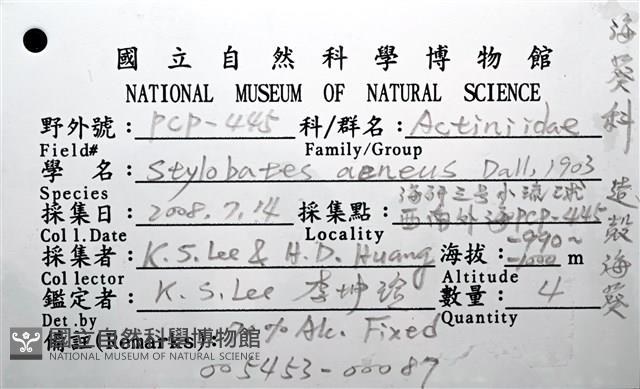 國立自然科學博物館
NATIONAL MUSEUM OF NATURAL SCIENCE
野外號: PCP-445 科/群名: Actiniidae
Field# Family/Group
學 名: Stylobates aeneus Dall, 1903
Species
海研三号小琉球
採集日: 2008.7.14 採集點: 西南外海PCP-445
Coll.Date Locality
-990~
採集者: K.S.Lee & H.D. Huang 海拔: -1000 m
Collector Altitude
鑑定者: K.S.Lee 李坤瑄 數量: 4
Det.by Quantity
備註(Remarks): 70% Alc. Fixed
005453-00087
海葵科 造殼海葵
國立自然科學博物館
NATIONAL MUSEUM OF NATURAL SCIENCE